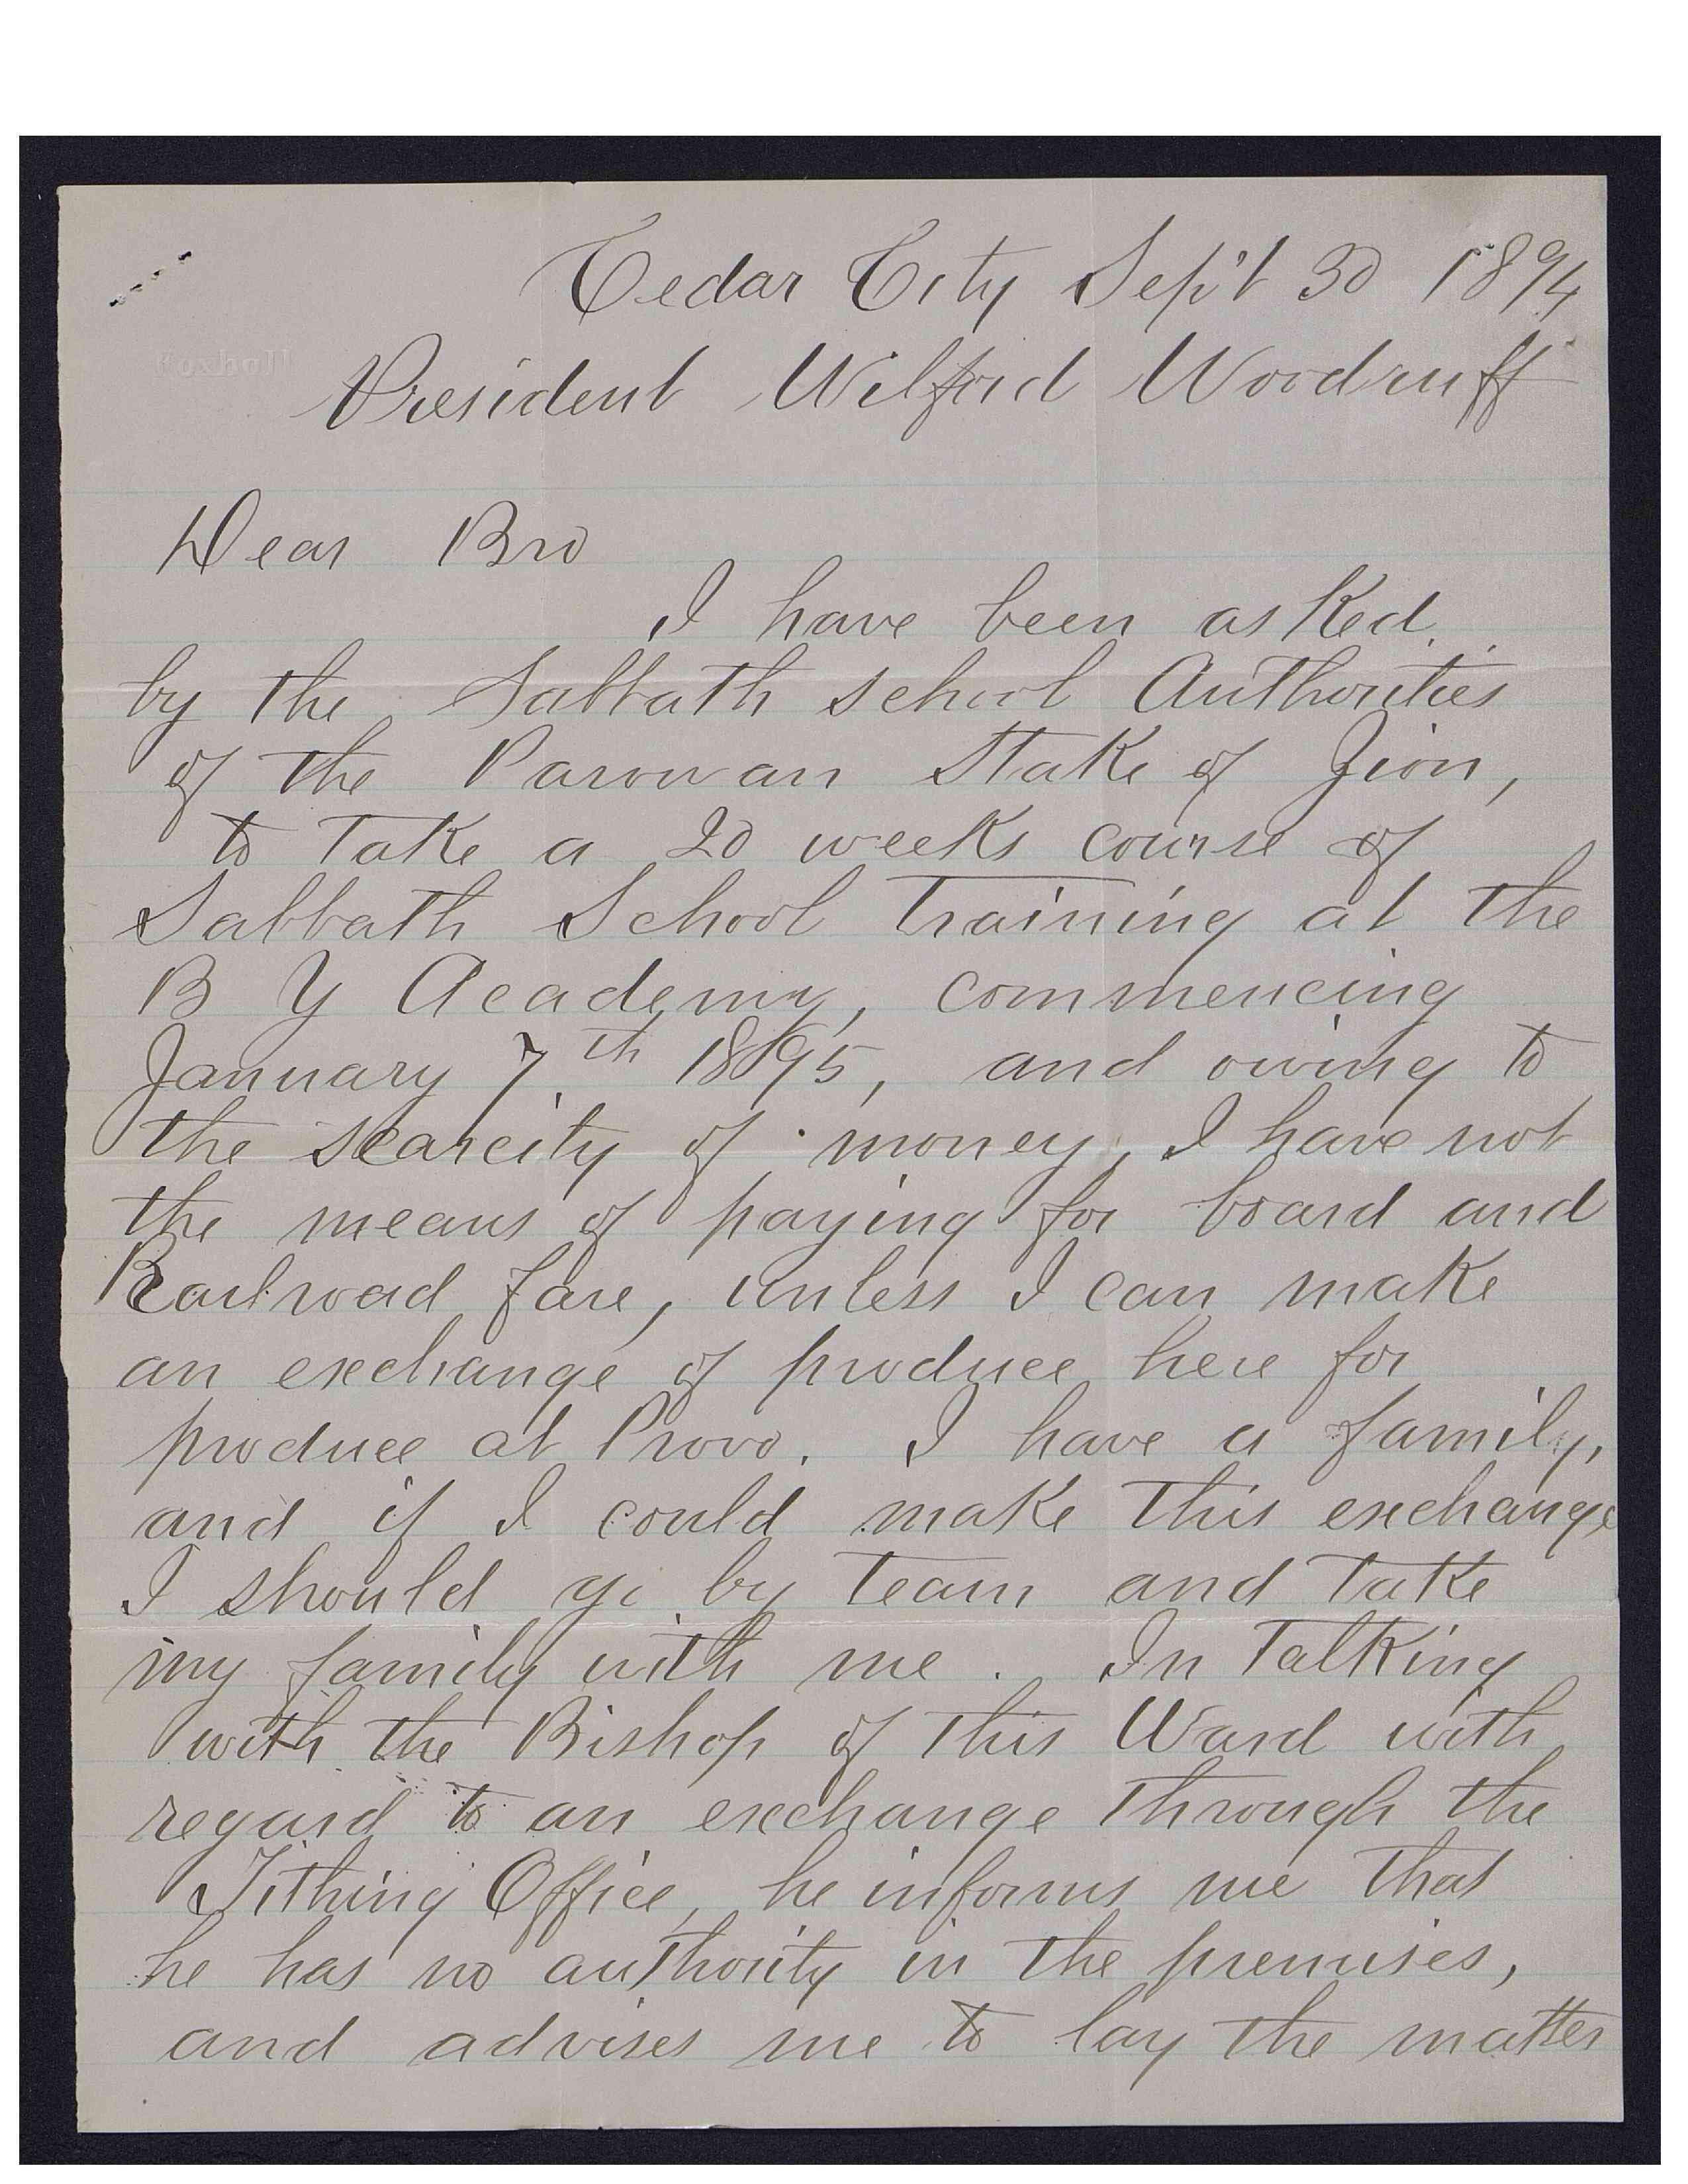 Cedar City Sep't 30 1894
President Wilford Woodruff
Dear Bro
I have been asked
by the Sabbath school Authorities
of the Parowan Stake of Zion,
to take a 20 weeks course of
Sabbath School training at the
B Y Academy, commencing
January 7th 1895, and owing to
the scarcity of money, I have not
the means of paying for board and
Railroad fare, unless I can make
an exchange of produce here for
produce at Provo. I have a family,
and if I could make this exchange
I should go by team and take
my family with me. In talking
with the Bishop of this Ward with
regard to an exchange through the
Tithing Office, he informs me that
he has no authority in the premises,
and advises me to lay the matter